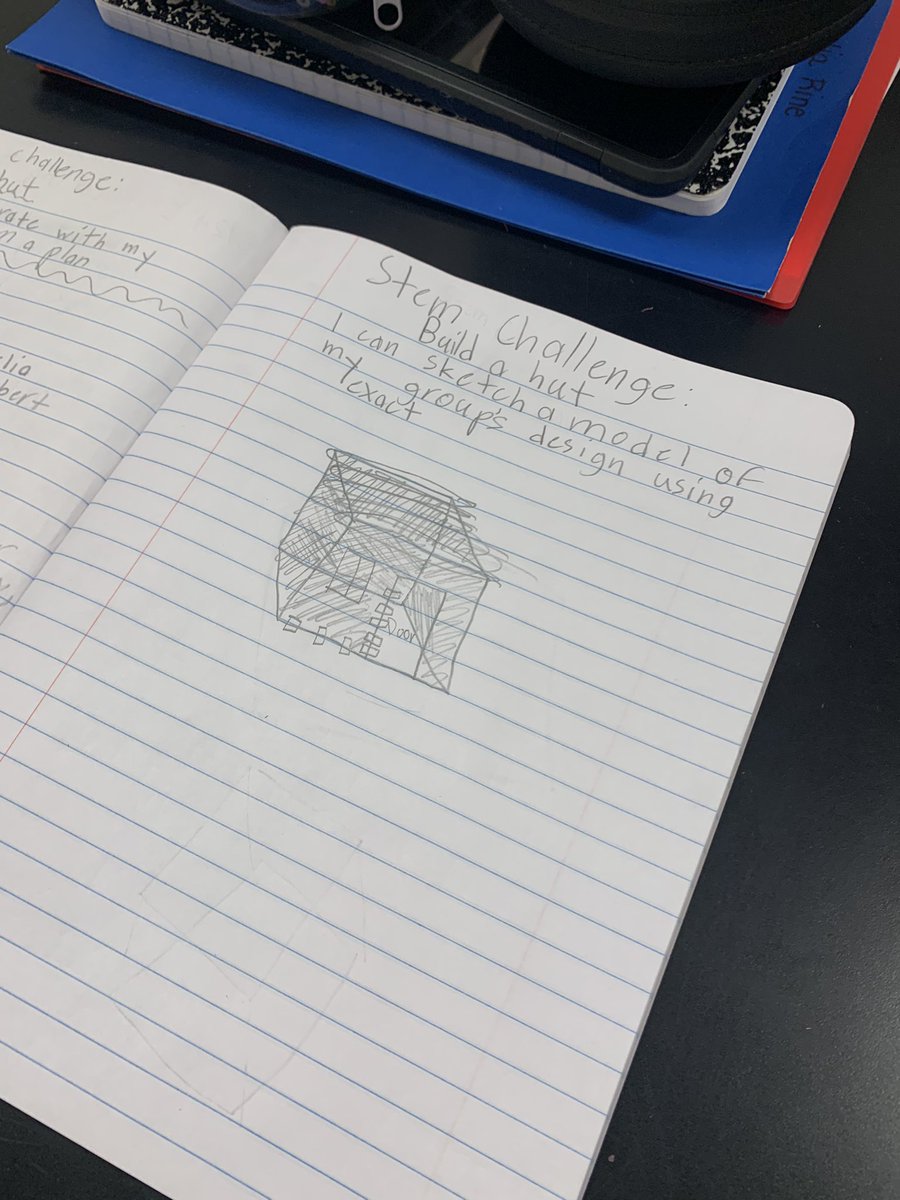 challenge:
hut
rate with my
n a plan
lia
bert
Stem Challenge:
Build a hut
I can sketch a model of
my group's design using
exact
Door
Rine